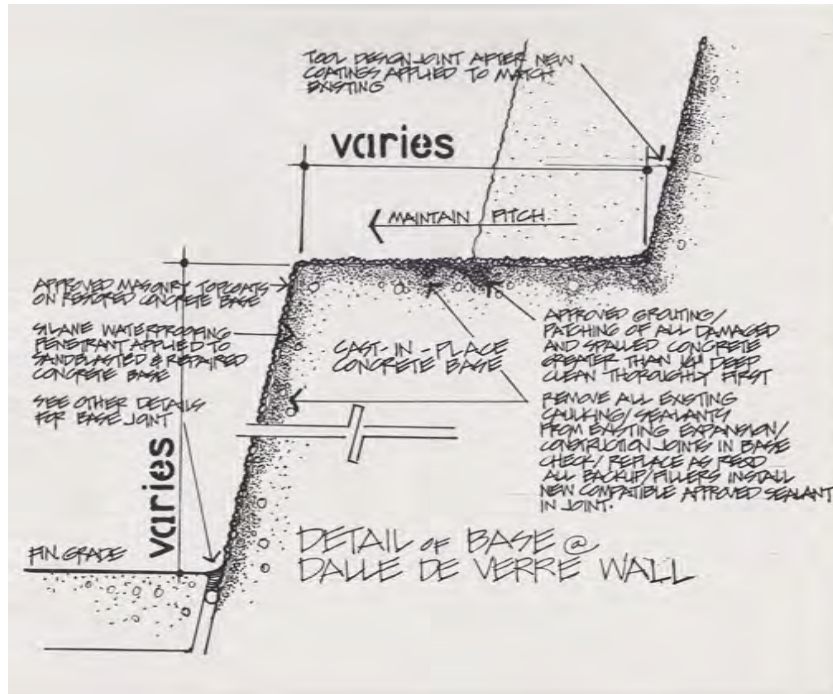 TOOL DESIGN JOINT AFTER NEW
COATINGS APPLIED TO MATCH
EXISTING
varies
MAINTAIN PITCH
APPROVED MASONRY TOPCOATS
ON RESTORED CONCRETE BASE
SILANE WATERPROOFING
PENETRANT APPLIED TO
SANDBLASTED & REPAIRED
CONCRETE BASE
SEE OTHER DETAILS
FOR BASE JOINT
CAST-IN-PLACE
CONCRETE BASE
APPROVED GROUTING/
PATCHING OF ALL DAMAGED
AND SPALLED CONCRETE
GREATER THAN DEEP
CLEAN THOROUGHLY FIRST
REMOVE ALL EXISTING
CAULKING/SEALANTS
FROM EXISTING EXPANSION/
CONSTRUCTION JOINTS IN BASE
CHECK/REPLACE AS REQD
ALL BACKUP/FILLERS INSTALL
NEW COMPATIBLE APPROVED SEALANT
IN JOINT.
varies
FIN. GRADE
DETAIL OF BASE @
DALLE DE VERRE WALL